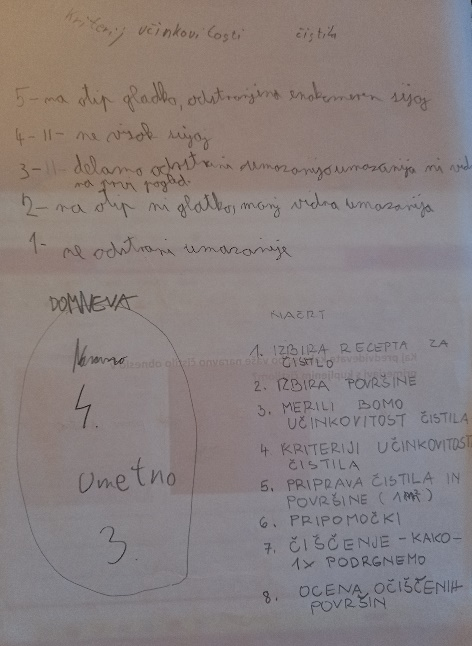 Kriterij učinkovitosti čistila
5 - na otip gladko, odstranjeno enakomeren sijaj
4 - 11 - ne visok sijaj
3 - 11 - delamo odstrani umazanijo umazanija ni
na prvi pogled.
2 - na otip ni glatko, manj vidna umazanija
1 - ne odstrani umazanije
DOMNEVA
4.
Umetno
3.
NAČRT
1. IZBIRA RECEPTA ZA
ČISTILO
2. IZBIRA POVRŠINE
3. MERILI BOMO
UČINKOVITOST ČISTILA
4. KRITERIJI UČINKOVITOST
ČISTILA
5. PRIPRAVA ČISTILA IN
POVRŠINE (1
6. PRIPOMOČKI
7. ČIŠČENJE - KAKO -
1X PODRGNEMO
8. OCENA OČIŠČENIH
POVRŠIN